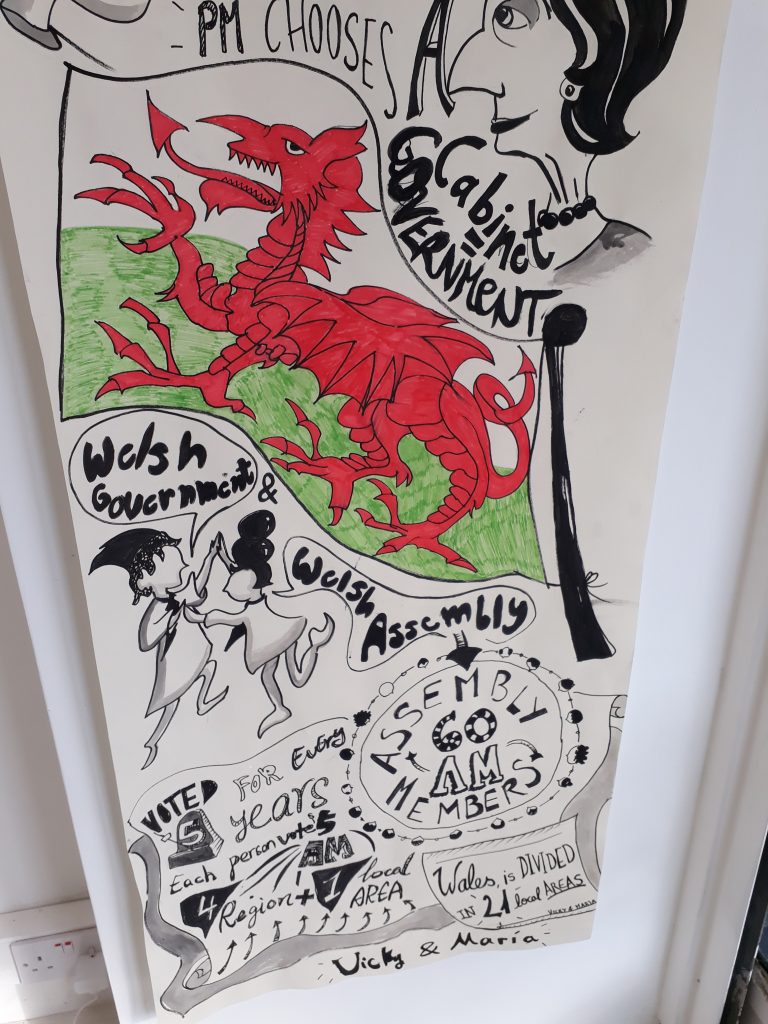 PM CHOOSES A
Cabinet
=
GOVERNMENT
Welsh
Government
&
Welsh
Assembly
ASSEMBLY
60
AM
MEMBERS
VOTED
FOR EVERY
5 years
Each person vote's 5
AM
4 Region + 1 local
AREA
Wales, is DIVIDED
IN 21 local AREAS
VICKY & MARIA
Vicky & Maria